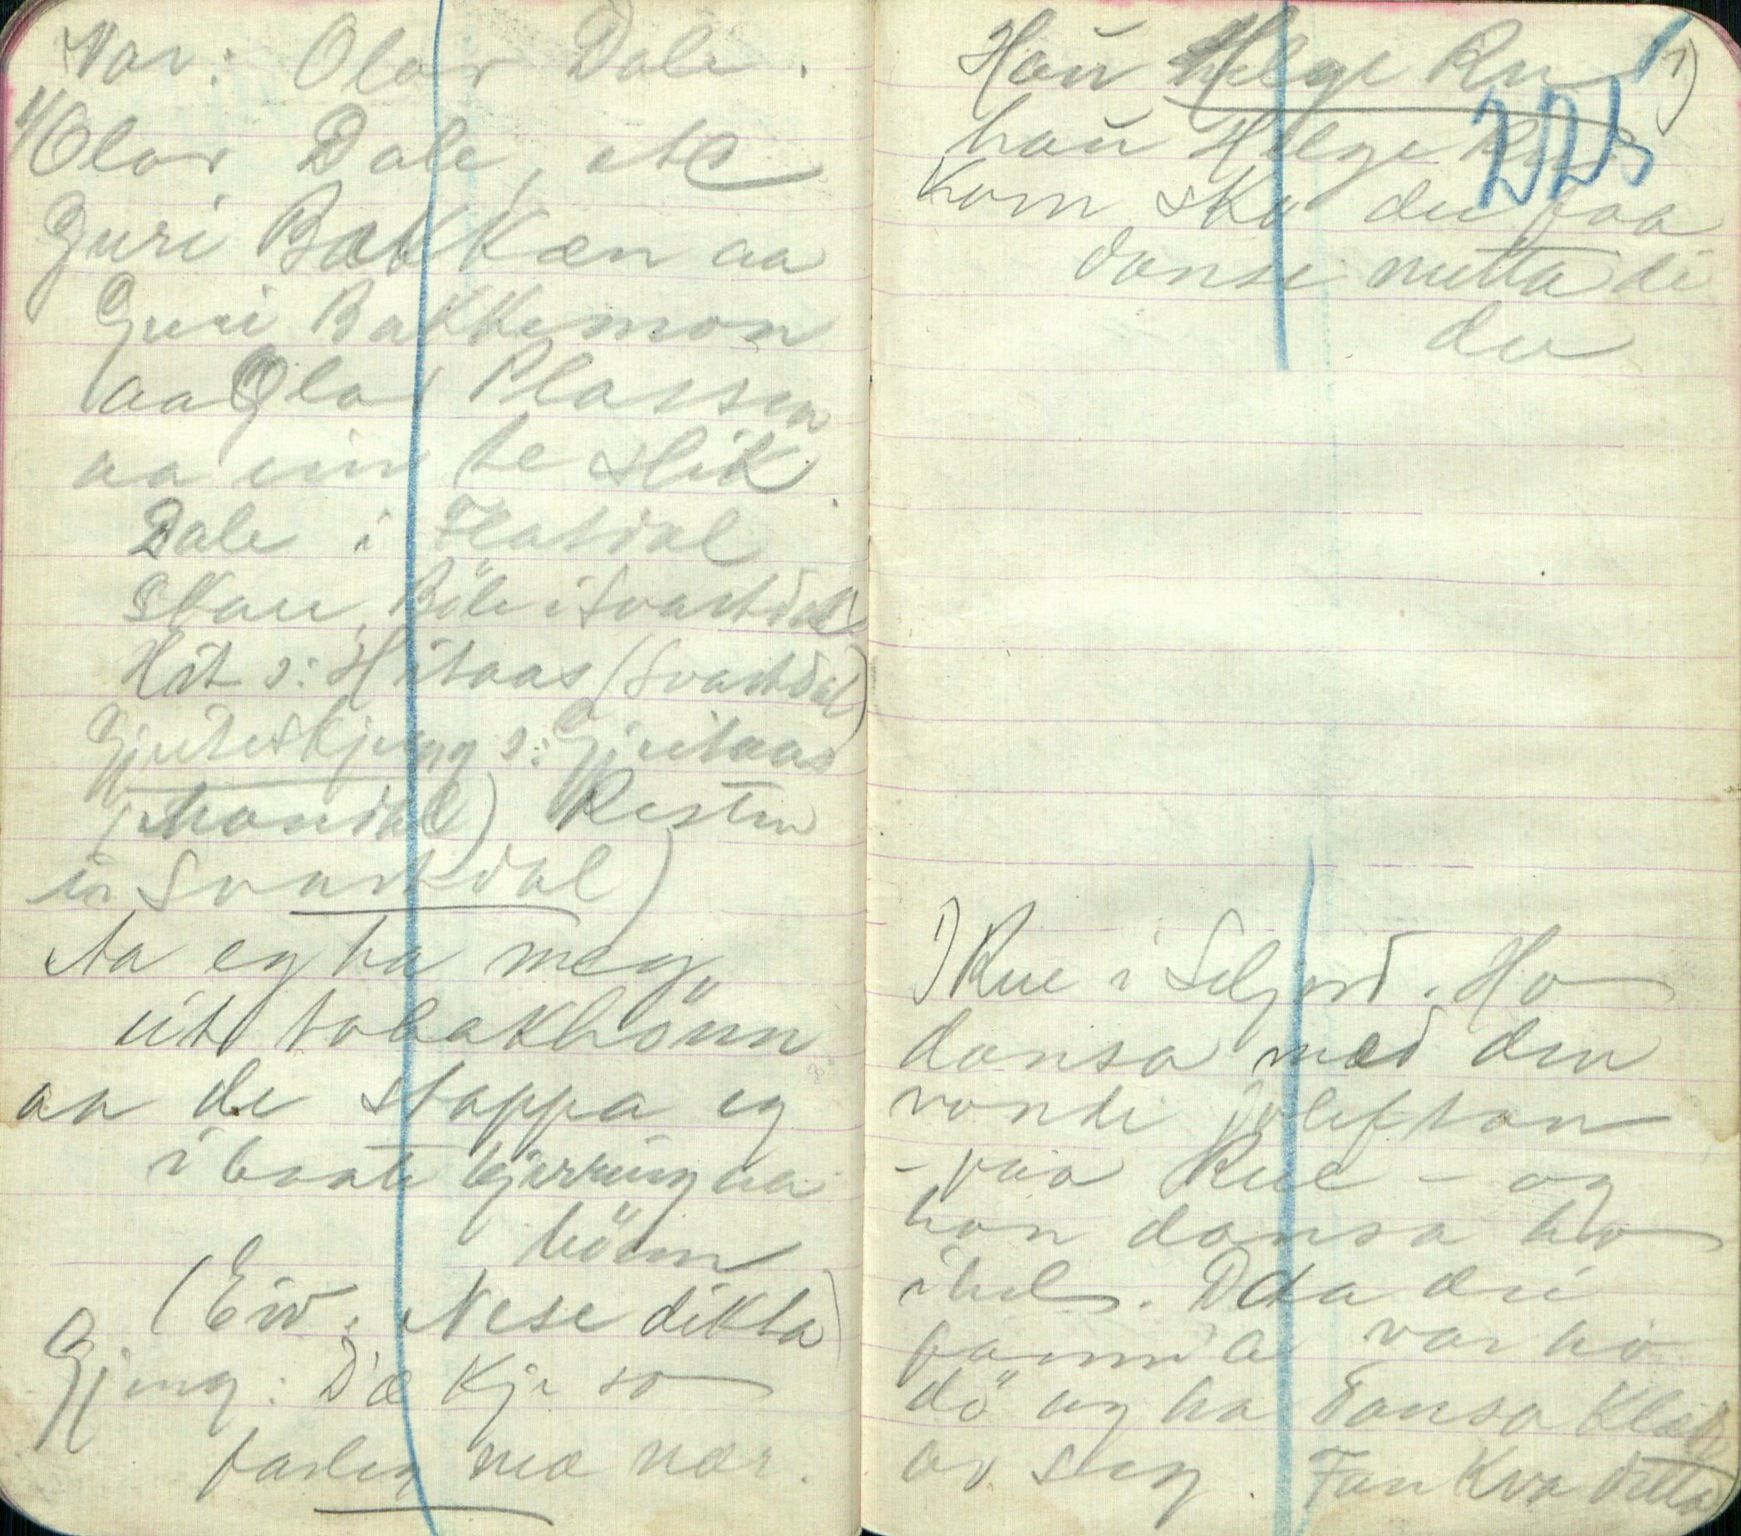 Var: Olav Dale.
1) Olav Dale, etc
Guri Bakkæn aa
Guri Bakkemon
aa Olav Plassen
aa ein te slik.
Dale i Flatdal
Skau, Böle i Svartdal
Hit ɔ: Hitaas (Svartdal)
Gjuterkjeng ɔ: Gjuitaas
Resten
i Svartdal)
ta eg ha meg
üt tobakhönn
aa de stappa eg
i baate kjærring aa
bönn
(Eiv. Nese dikta)
Gjeng: D'æ kje so
farleg mæ nær.
Haü Helge Ru 1)
225
haü Helge Ru
Kom ska du faa
danse netta di
du
1) Rue i Seljord. Ho
dansa med den
vonde joleftan
- paa Rue - og
han dansa ho
ihel. Dda dei
fann a var ho
dö og ha dansa Klæ
av seg. Fan kva detta